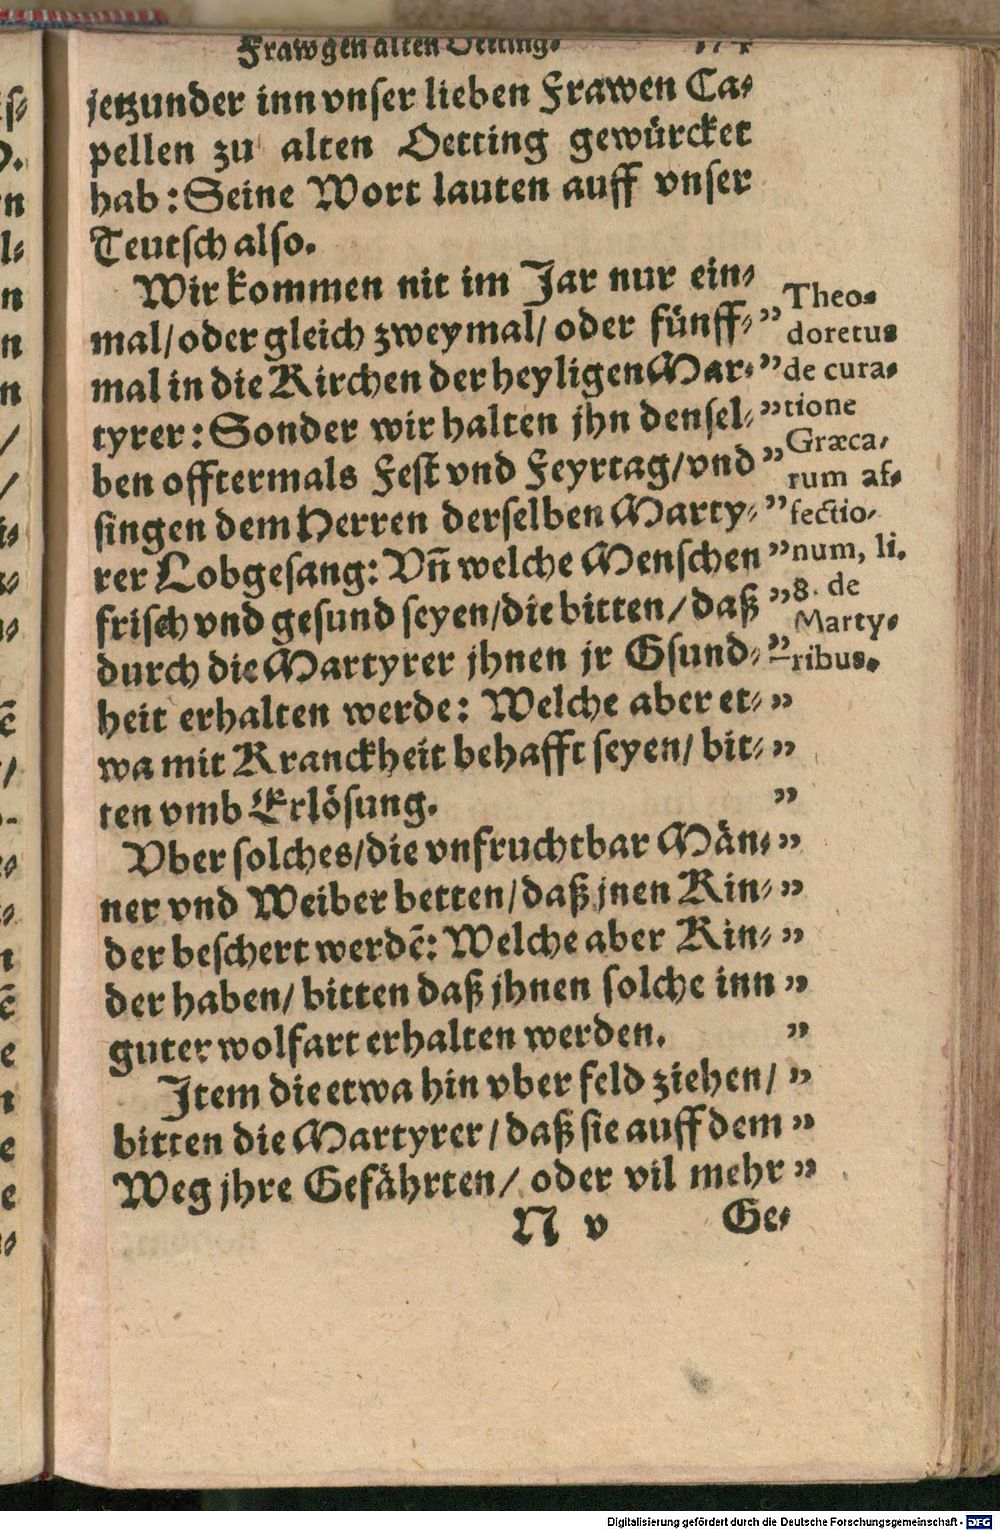 Fraw gen alten Oetting.
jetzunder inn vnser lieben Frawen Ca⸗
pellen zu alten Oetting gewürcket
hab: Seine Wort lauten auff vnser
Teutsch also.
Wir kommen nit im Jar nur ein⸗
mal/ oder gleich zweymal/ oder fünff⸗ „
mal in die Kirchen der heyligen Mar⸗ „
tyrer: Sonder wir halten jhn densel⸗ „
ben offtermals Fest vnd Feyrtag/ vnd „
singen dem Herren derselben Marty⸗ „
rer Lobgesang: Vñ welche Menschen „
frisch vnd gesund seyen/ die bitten/ daß „
durch die Martyrer jhnen jr Gsund⸗ „
heit erhalten werde: Welche aber et⸗ „
wa mit Kranckheit behafft seyen/ bit⸗ „
ten vmb Erlösung. „
Vber solches/ die vnfruchtbar Män⸗ „
ner vnd Weiber betten/ daß jnen Kin⸗ „
der beschert werdẽ: Welche aber Kin⸗ „
der haben/ bitten daß jhnen solche inn „
guter wolfart erhalten werden. „
Item die etwa hin vber feld ziehen/ „
bitten die Martyrer/ daß sie auff dem „
Weg jhre Gefährten/ oder vil mehr „
N v Ge⸗
Theo⸗
doretus
de cura⸗
tione
Græca⸗
rum af⸗
fectio⸗
num, li.
8. de
Marty⸗
ribus.
Digitalisierung gefördert durch die Deutsche Forschungsgemeinschaft - DFG